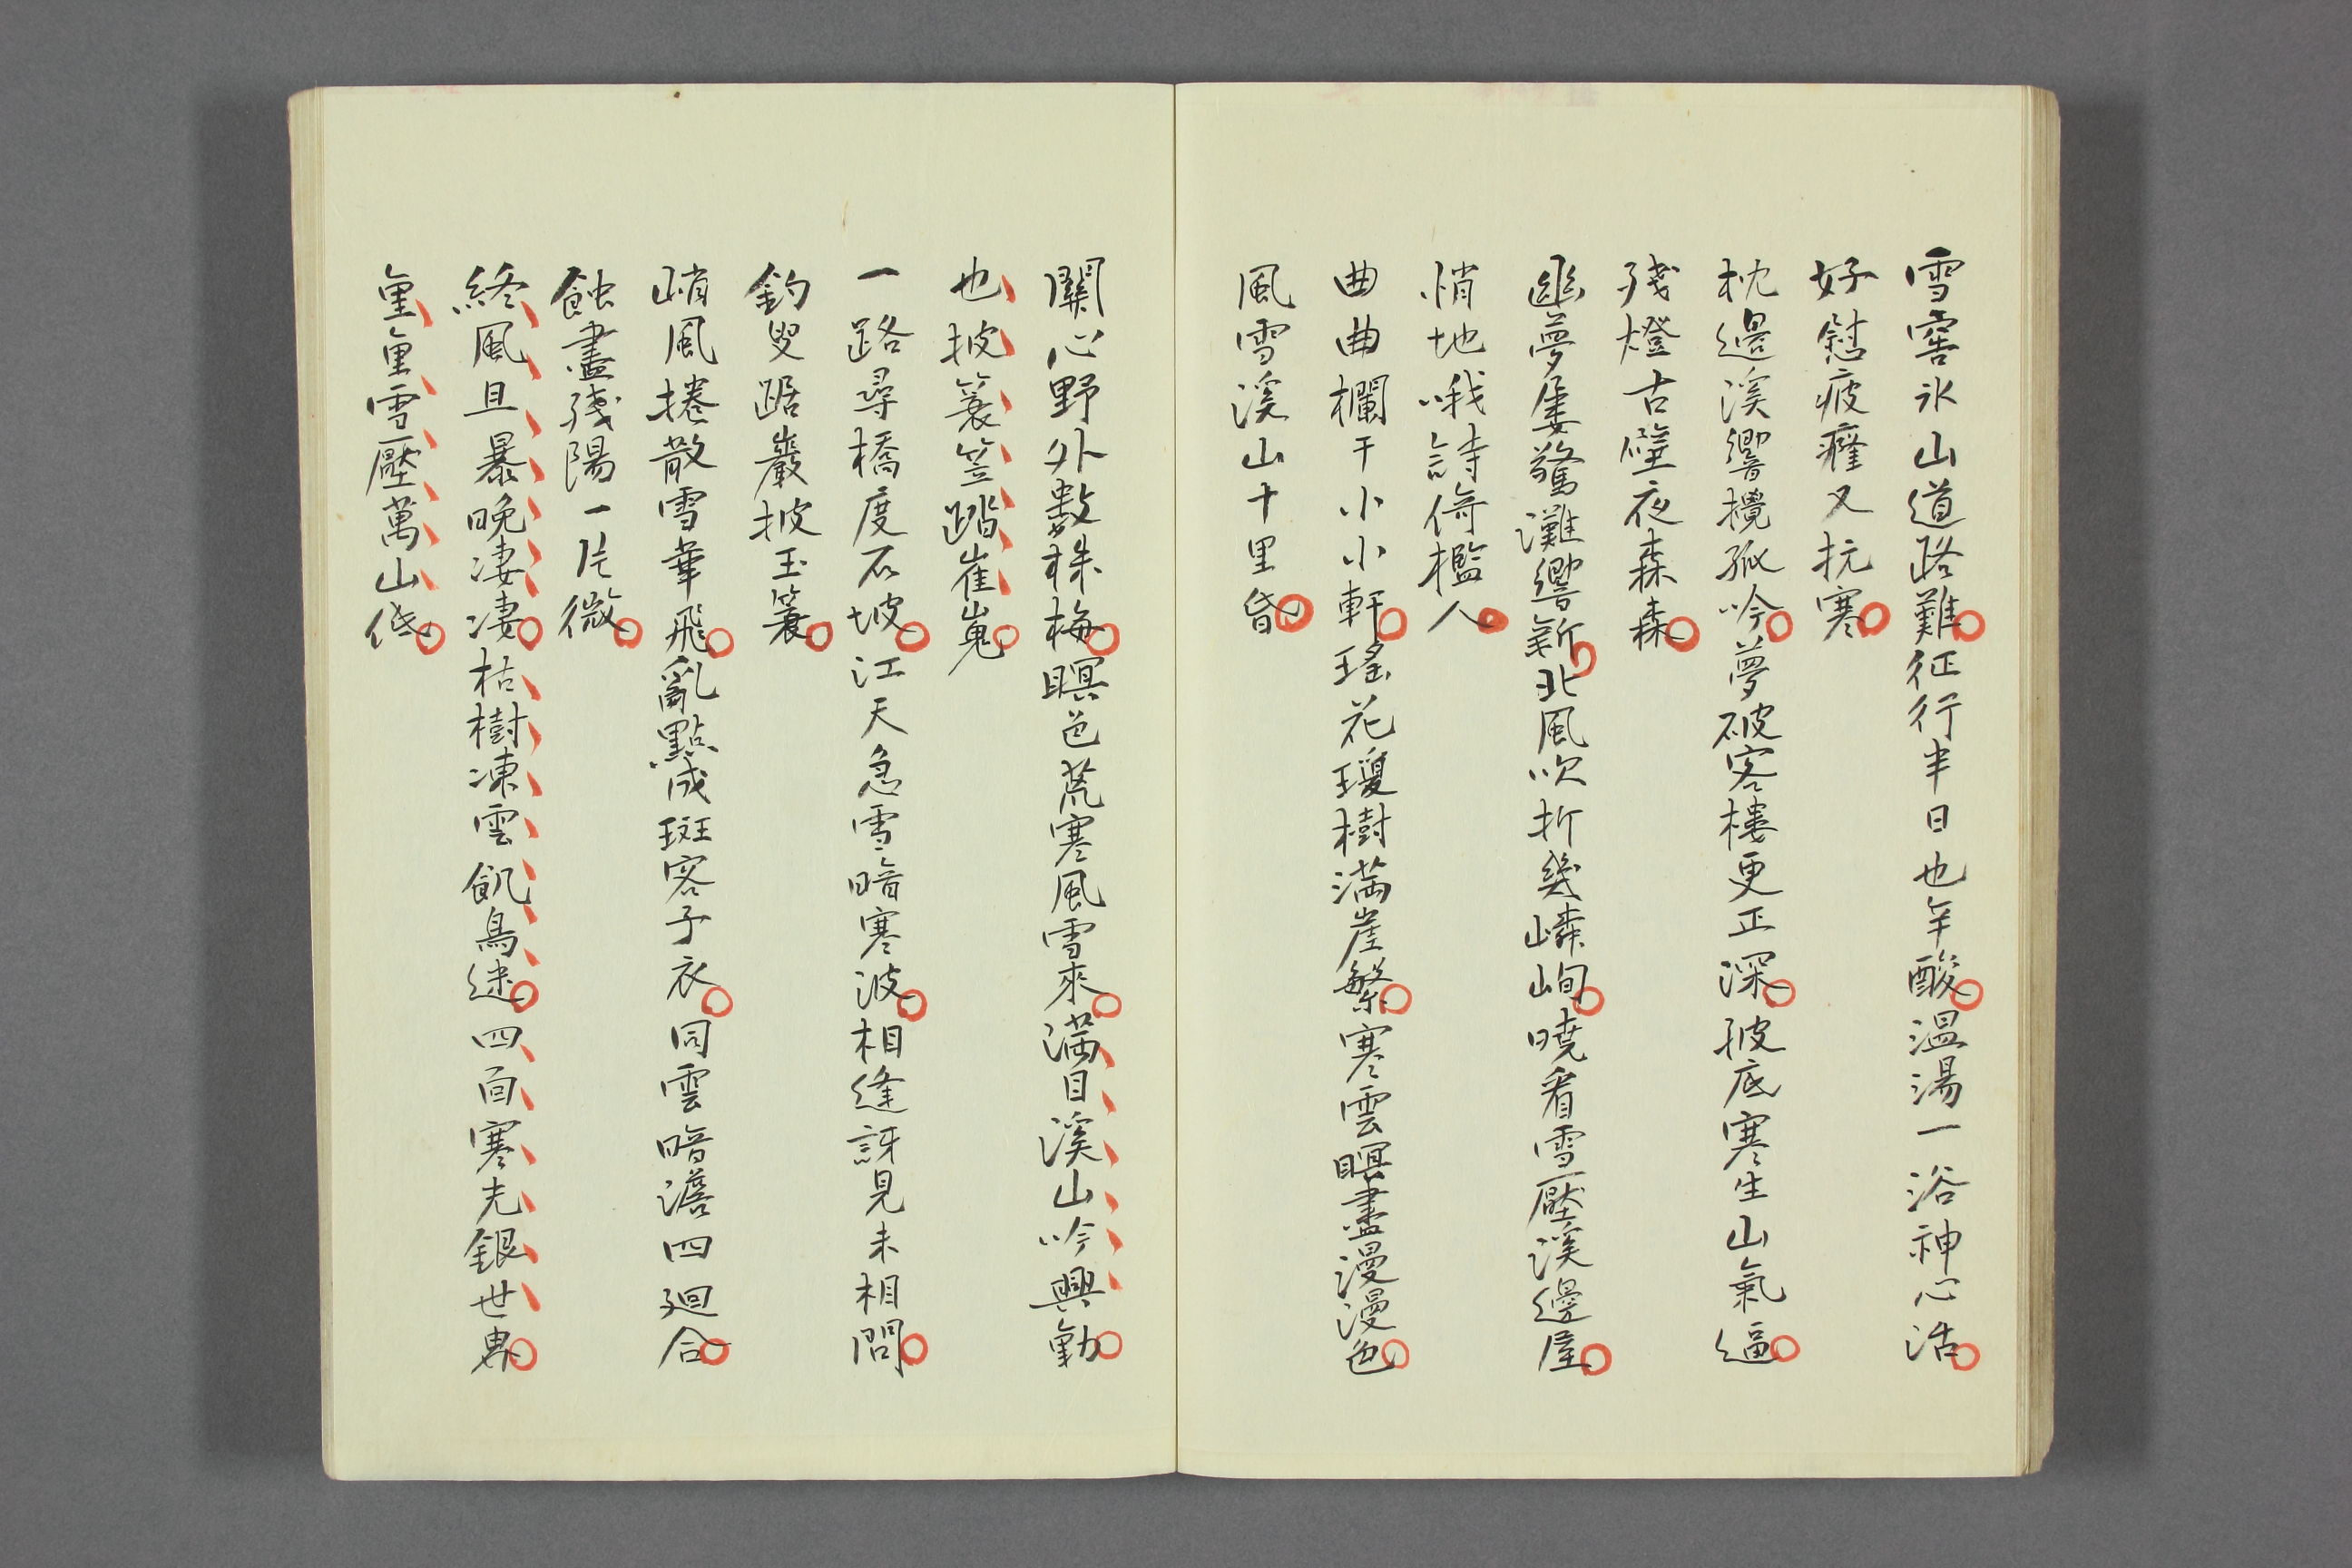 雪窖氷山道路難征行半日也辛酸温湯一浴神心活
好慰疲癃又抗寒
枕邊溪響攪孤吟夢破客樓更正深被底寒生山氣逼
残燈古壁夜森森
幽夢屡驚灘響新北風吹折幾嶙峋暁看雪壓溪邊屋
悄地哦詩倚檻人
曲曲欄干小小軒瑤花瓊樹満崖繁寒雲暝盡漫漫色
風雪溪山十里昏
關心野外数株梅暝色荒寒風雪來満目溪山吟興動
也披簑笠踏崔嵬
一路尋橋度石坡江天急雪暗寒波相逢訝見未相問
釣叟踞巖披玉簑
峭風捲散雪華飛亂點成斑客子衣同雲暗澹四廻合
蝕盡残陽一片微
終風且暴晩凄凄枯樹凍雲飢鳥迷四面寒光銀世界
重重雪壓萬山低